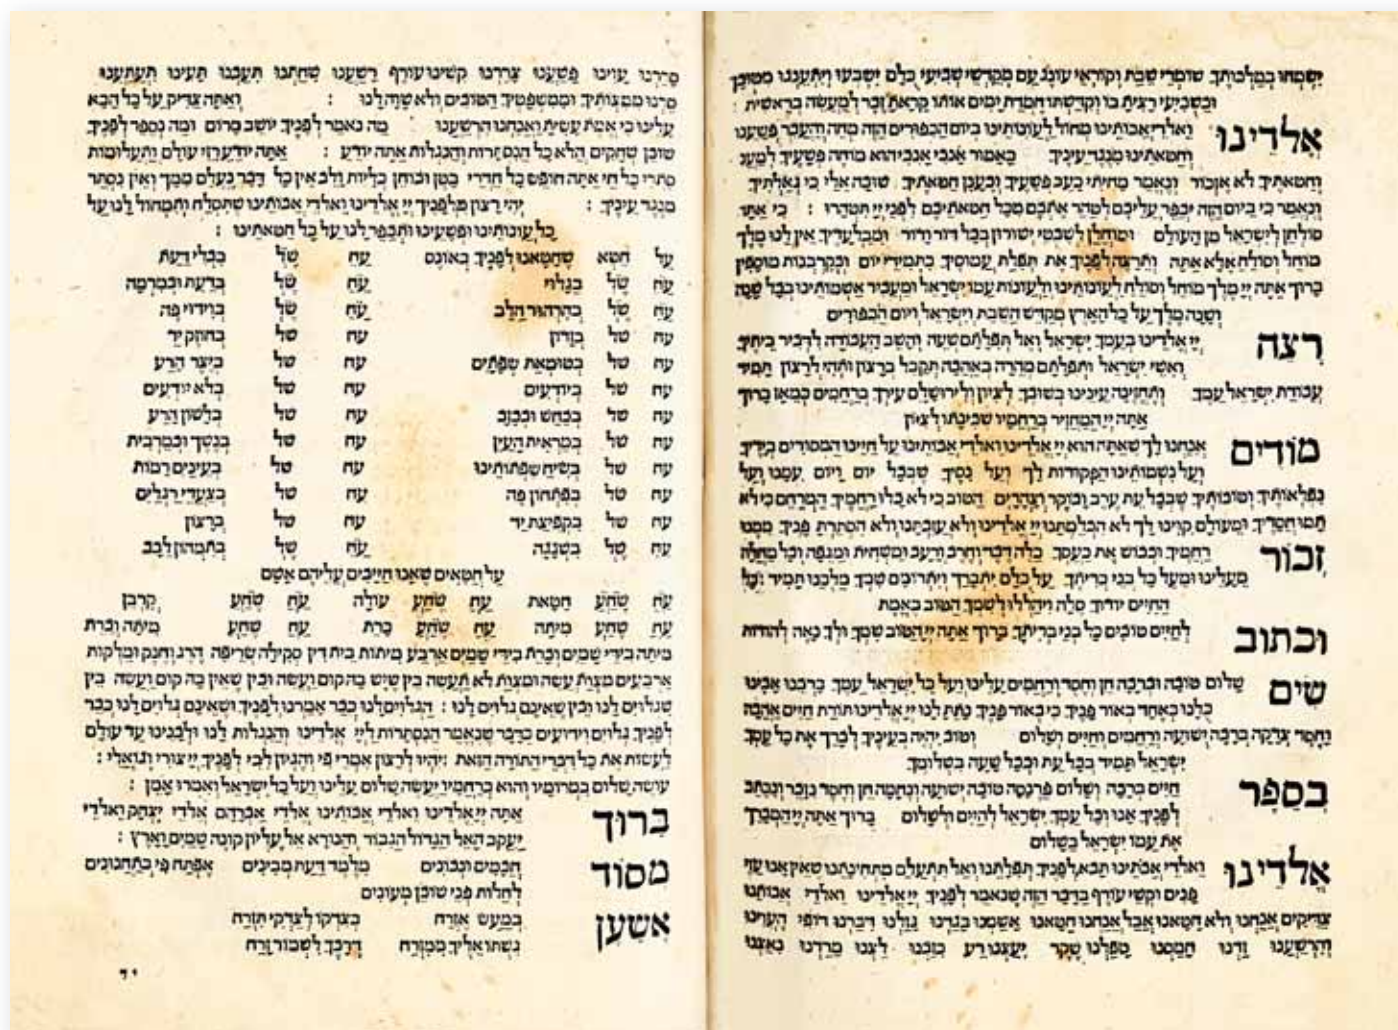 יִשְׂמְחוּ בְמַלְכוּתָךְ שׁוֹמְרֵי שַׁבָּת וְקוֹרְאֵי עוֹנֶג עַם מְקַדְּשֵׁי שְׁבִיעִי כֻּלָּם יִשְׂבְּעוּ וְיִתְעַנְּגוּ מִטּוּבָךְ
וּבַשְּׁבִיעִי רָצִיתָ בּוֹ וְקִדַּשְׁתּוֹ חֶמְדַּת יָמִים אוֹתוֹ קָרָאתָ זֵכֶר לְמַעֲשֵׂה בְרֵאשִׁית
אֱלֹדֵינוּ וֵאלֹדֵי אֲבוֹתֵינוּ מְחוֹל לַעֲוֹנוֹתֵינוּ בְּיוֹם הַכִּפּוּרִים הַזֶּה מְחֵה וְהַעֲבֵר פְּשָׁעֵינוּ
וְחַטֹּאתֵינוּ מִנֶּגֶד עֵינֶיךָ כָּאָמוּר אָנֹכִי אָנֹכִי הוּא מוֹחֶה פְשָׁעֶיךָ לְמַעֲנִי
וְחַטֹּאתֶיךָ לֹא אֶזְכּוֹר וְנֶאֱמַר מָחִיתִי כָעָב פְּשָׁעֶיךָ וְכֶעָנָן חַטֹּאתֶיךָ שׁוּבָה אֵלַי כִּי גְאַלְתִּיךָ
וְנֶאֱמַר כִּי בַיּוֹם הַזֶּה יְכַפֵּר עֲלֵיכֶם לְטַהֵר אֶתְכֶם מִכֹּל חַטֹּאתֵיכֶם לִפְנֵי יְיָ תִּטְהָרוּ : כִּי אַתָּה
סוֹלְחָן לְיִשְׂרָאֵל מִן הָעוֹלָם וּמוֹחֲלָן לְשִׁבְטֵי יְשׁוּרוּן בְּכָל דּוֹר וָדוֹר וּמִבַּלְעָדֶיךָ אֵין לָנוּ מֶלֶךְ
מוֹחֵל וְסוֹלֵחַ אֶלָּא אָתָּה וְתִרְצֶה לְפָנֶיךָ אֶת תְּפִלַּת עֲמוּסֶיךָ כִּתְמִידֵי יוֹם וּכְקָרְבְּנוֹת מוּסָפִין
בָּרוּךְ אַתָּה יְיָ מֶלֶךְ מוֹחֵל וְסוֹלֵחַ לַעֲוֹנוֹתֵינוּ וְלַעֲוֹנוֹת עַמּוֹ יִשְׂרָאֵל וּמַעֲבִיר אַשְׁמוֹתֵינוּ בְּכָל שָׁנָה
וְשָׁנָה מֶלֶךְ עַל כָּל הָאָרֶץ מְקַדֵּשׁ הַשַּׁבָּת וְיִשְׂרָאֵל וְיוֹם הַכִּפּוּרִים
רְצֵה יְיָ אֱלֹדֵינוּ בְּעַמְּךָ יִשְׂרָאֵל וְאֶל תְּפִלָּתָם שְׁעֵה וְהָשֵׁב הָעֲבוֹדָה לִדְבִיר בֵּיתֶךָ
וְאִשֵּׁי יִשְׂרָאֵל וּתְפִלָּתָם מְהֵרָה בְּאַהֲבָה תְקַבֵּל בְּרָצוֹן וּתְהִי לְרָצוֹן תָּמִיד
עֲבוֹדַת יִשְׂרָאֵל עַמֶּךָ וְתֶחֱזֶינָה עֵינֵינוּ בְּשׁוּבְךָ לְצִיּוֹן וְלִירוּשָׁלַיִם עִירְךָ בְּרַחֲמִים כְּמֵאָז בָּרוּךְ
אַתָּה יְיָ הַמַּחֲזִיר בְּרַחֲמָיו שְׁכִינָתוֹ לְצִיּוֹן
מוֹדִים אֲנַחְנוּ לָךְ שֶׁאַתָּה הוּא יְיָ אֱלֹדֵינוּ וֵאלֹדֵי אֲבוֹתֵינוּ עַל חַיֵּינוּ הַמְּסוּרִים בְּיָדֶיךָ
וְעַל נִשְׁמוֹתֵינוּ הַפְּקוּדוֹת לָךְ וְעַל נִסֶּיךָ שֶׁבְּכָל יוֹם וָיוֹם עִמָּנוּ וְעַל
נִפְלְאוֹתֶיךָ וְטוֹבוֹתֶיךָ שֶׁבְּכָל עֵת עֶרֶב וָבוֹקֶר וְצָהֳרָיִם הַטּוֹב כִּי לֹא כָלוּ רַחֲמֶיךָ הַמְרַחֵם כִּי לֹא
תַמּוּ חֲסָדֶיךָ וּמֵעוֹלָם קִוִּינוּ לָךְ לֹא הִכְלַמְתָּנוּ יְיָ אֱלֹדֵינוּ וְלֹא עֲזַבְתָּנוּ וְלֹא הִסְתַּרְתָּ פָּנֶיךָ מִמֶּנּוּ
זְכוֹר רַחֲמֶיךָ וּכְבוֹשׁ אֶת כַּעַסְךָ כַּלֵּה דֶבֶר וְחֶרֶב וְרָעָב וּמַשְׁחִית וּמַגֵּפָה וְכָל מַחֲלָה
מֵעָלֵינוּ וּמֵעַל כָּל בְּנֵי בְרִיתֶךָ עַל כֻּלָּם יִתְבָּרַךְ וְיִתְרוֹמַם שִׁמְךָ מַלְכֵּנוּ תָּמִיד וְכֹל
הַחַיִּים יוֹדוּךָ סֶלָה וִיהַלְלוּ לְשִׁמְךָ הַטּוֹב בֶּאֱמֶת
וּכְתוֹב לְחַיִּים טוֹבִים כָּל בְּנֵי בְרִיתֶךָ בָּרוּךְ אַתָּה יְיָ הַטּוֹב שִׁמְךָ וּלְךָ נָאֶה לְהוֹדוֹת
שִׂים שָׁלוֹם טוֹבָה וּבְרָכָה חֵן וָחֶסֶד וְרַחֲמִים עָלֵינוּ וְעַל כָּל יִשְׂרָאֵל עַמֶּךָ בָּרְכֵנוּ אָבִינוּ
כֻּלָּנוּ כְּאֶחָד בְּאוֹר פָּנֶיךָ כִּי בְאוֹר פָּנֶיךָ נָתַתָּ לָנוּ יְיָ אֱלֹדֵינוּ תּוֹרַת חַיִּים אַהֲבָה
וָחֶסֶד צְדָקָה בְרָכָה יְשׁוּעָה וְרַחֲמִים וְחַיִּים וְשָׁלוֹם וְטוֹב יִהְיֶה בְעֵינֶיךָ לְבָרֵךְ אֶת כָּל עַמְּךָ
יִשְׂרָאֵל תָּמִיד בְּכָל עֵת וּבְכָל שָׁעָה בִּשְׁלוֹמֶךָ
בְּסֵפֶר חַיִּים בְּרָכָה וְשָׁלוֹם פַּרְנָסָה טוֹבָה יְשׁוּעָה וְנֶחָמָה חֵן וָחֶסֶד נִזָּכֵר וְנִכָּתֵב
לְפָנֶיךָ אָנוּ וְכָל עַמְּךָ יִשְׂרָאֵל לְחַיִּים וּלְשָׁלוֹם בָּרוּךְ אַתָּה יְיָ הַמְבָרֵךְ
אֶת עַמּוֹ יִשְׂרָאֵל בַּשָּׁלוֹם
אֱלֹדֵינוּ וֵאלֹדֵי אֲבוֹתֵינוּ תָּבֹא לְפָנֶיךָ תְּפִלָּתֵנוּ וְאַל תִּתְעַלַּם מִתְּחִנָּתֵנוּ שֶׁאֵין אָנוּ עַזֵּי
פָנִים וּקְשֵׁי עוֹרֶף בַּדָּבָר הַזֶּה שֶׁנֹּאמַר לְפָנֶיךָ יְיָ אֱלֹדֵינוּ וֵאלֹדֵי אֲבוֹתֵנוּ
צַדִּיקִים אֲנַחְנוּ וְלֹא חָטָאנוּ אֲבָל אֲנַחְנוּ חָטָאנוּ אָשַׁמְנוּ בָּגַדְנוּ גָּזַלְנוּ דִּבַּרְנוּ דוֹפִי הֶעֱוִינוּ
וְהִרְשַׁעְנוּ זַדְנוּ חָמַסְנוּ טָפַלְנוּ שֶׁקֶר יָעַצְנוּ רָע כִּזַּבְנוּ לַצְנוּ מָרַדְנוּ נִאַצְנוּ
סָרַרְנוּ עָוִינוּ פָּשַׁעְנוּ צָרַרְנוּ קִשִּׁינוּ עוֹרֶף רָשַׁעְנוּ שִׁחַתְנוּ תִּעַבְנוּ תָּעִינוּ תִּעְתָּעְנוּ
סַרְנוּ מִמִּצְוֹתֶיךָ וּמִמִּשְׁפָּטֶיךָ הַטּוֹבִים וְלֹא שָׁוָה לָנוּ : וְאַתָּה צַדִּיק עַל כָּל הַבָּא
עָלֵינוּ כִּי אֱמֶת עָשִׂיתָ וַאֲנַחְנוּ הִרְשָׁעְנוּ מַה נֹּאמַר לְפָנֶיךָ יוֹשֵׁב מָרוֹם וּמַה נְּסַפֵּר לְפָנֶיךָ
שׁוֹכֵן שְׁחָקִים הֲלֹא כָּל הַנִּסְתָּרוֹת וְהַנִּגְלוֹת אַתָּה יוֹדֵעַ : אַתָּה יוֹדֵעַ רָזֵי עוֹלָם וְתַעֲלוּמוֹת
סִתְרֵי כָּל חָי אַתָּה חוֹפֵשׂ כָּל חַדְרֵי בָטֶן וּבוֹחֵן כְּלָיוֹת וָלֵב אֵין כָּל דָּבָר נֶעְלָם מִמָּךְ וְאֵין נִסְתָּר
מִנֶּגֶד עֵינֶיךָ : יְהִי רָצוֹן מִלְּפָנֶיךָ יְיָ אֱלֹדֵינוּ וֵאלֹדֵי אֲבוֹתֵינוּ שֶׁתִּסְלַח וְתִמְחוֹל לָנוּ עַל
כָּל עֲוֹנוֹתֵינוּ וּפְשָׁעֵינוּ וּתְכַפֵּר לָנוּ עַל כָּל חַטֹּאתֵינוּ :
עַל חֵטְא שֶׁחָטָאנוּ לְפָנֶיךָ בְּאוֹנֶס עַח שֶׁל בִּבְלִי דָעַת
עַח שֶׁל בַּגָּלוּי עַח שֶׁל בְּדַעַת וּבְמִרְמָה
עַח שֶׁל בְּהִרְהוּר הַלֵּב עַח שֶׁל בְּוִידּוּי פֶּה
עח של בְּזָדוֹן עח של בְּחוֹזֶק יָד
עח של בְּטוּמְאַת שְׂפָתַיִם עח של בְּיֵצֶר הָרָע
עח של בְּיוֹדְעִים עח של בְּלֹא יוֹדְעִים
עח של בְּכַחַשׁ וּבְכָזָב עח של בְּלָשׁוֹן הָרָע
עח של בְּמַרְאִית הָעַיִן עח של בְּנֶשֶׁךְ וּבְמַרְבִּית
עח של בְּשִׂיחַ שִׂפְתוֹתֵינוּ עח של בְּעֵינַיִם רָמוֹת
עח של בְּפִתְחוֹן פֶּה עח של בְּצַעֲדֵי רַגְלַיִם
עח של בִּקְפִיצַת יָד עח של בְּרָצוֹן
עח שֶׁל בִּשְׁגָגָה עַח שֶׁל בְּתִמְהוֹן לֵבָב
עַל חֲטָאִים שֶׁאָנוּ חַיָּיבִים עֲלֵיהֶם אָשָׁם
עַח שֶׁחַע חַטָּאת עַח שֶׁחַע עוֹלָה עַח שֶׁחַע קָרְבָּן
עַח שֶׁחַע מִיתָה עַח שֶׁחַע כָּרֵת עַח שֶׁחַע מִיתָה וְכָרֵת
מִיתָה בִּידֵי שָׁמַיִם וְכָרֵת בִּידֵי שָׁמַיִם אַרְבַּע מִיתוֹת בֵּית דִּין סְקִילָה שְׂרֵיפָה הֶרֶג וְחֶנֶק וּמַלְקוּת
אַרְבָּעִים מִצְוֹת עֲשֵׂה וּמִצְוֹת לֹא תַעֲשֶׂה בֵּין שֶׁיֵּשׁ בָּהּ קוּם וַעֲשֵׂה וּבֵין שֶׁאֵין בָּהּ קוּם וַעֲשֵׂה בֵּין
שֶׁגְּלוּיִם לָנוּ וּבֵין שֶׁאֵינָם גְּלוּיִם לָנוּ : הַגְּלוּיִם לָנוּ כְּבָר אֲמַרְנוּם לְפָנֶיךָ וְשֶׁאֵינָם גְּלוּיִם לָנוּ כְּבָר
לְפָנֶיךָ גְּלוּיִם וִידוּעִים כַּדָּבָר שֶׁנֶּאֱמַר הַנִּסְתָּרוֹת לַיְיָ אֱלֹדֵינוּ וְהַנִּגְלוֹת לָנוּ וּלְבָנֵינוּ עַד עוֹלָם
לַעֲשׂוֹת אֶת כָּל דִּבְרֵי הַתּוֹרָה הַזֹּאת : יִהְיוּ לְרָצוֹן אִמְרֵי פִי וְהֶגְיוֹן לִבִּי לְפָנֶיךָ יְיָ צוּרִי וְגוֹאֲלִי :
עוֹשֶׂה שָׁלוֹם בִּמְרוֹמָיו וְהוּא בְּרַחֲמָיו יַעֲשֶׂה שָׁלוֹם עָלֵינוּ וְעַל כָּל יִשְׂרָאֵל וְאִמְרוּ אָמֵן :
בָּרוּךְ אַתָּה יְיָ אֱלֹדֵינוּ וֵאלֹדֵי אֲבוֹתֵינוּ אֱלֹדֵי אַבְרָהָם אֱלֹדֵי יִצְחָק וֵאלֹדֵי
יַעֲקֹב הָאֵל הַגָּדוֹל הַגִּבּוֹר וְהַנּוֹרָא אֵל עֶלְיוֹן קוֹנֵה שָׁמַיִם וָאָרֶץ :
מִסּוֹד חֲכָמִים וּנְבוֹנִים מִלֶּמֶד דַּעַת מְבִינִים אֶפְתַּח פִּי בְּתַחֲנוּנִים
לְחַלּוֹת פְּנֵי שׁוֹכֵן מְעוֹנִים
אֶשָּׁעֵן בְּמַעַשׂ אֶזְרָח בְּצִדְקוֹ לְצַדְּקִי תִּזְרַח
גִּשְׁתּוֹ אֵלֶיךָ מִמִּזְרָח דַּרְכְּךָ לִשְׁמוֹר זָרַח
יד